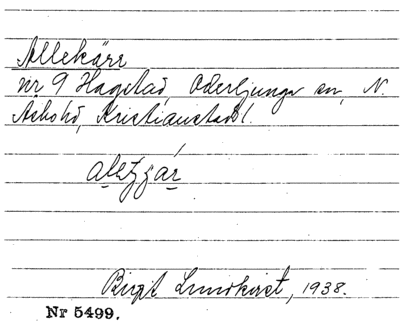 Allekärr
nr 9 Hagstad, Oderljunga sn, N.
Åsbo hd, Kristianstads l.
Birgit Lundkvist, 1938.
Nr 5499.